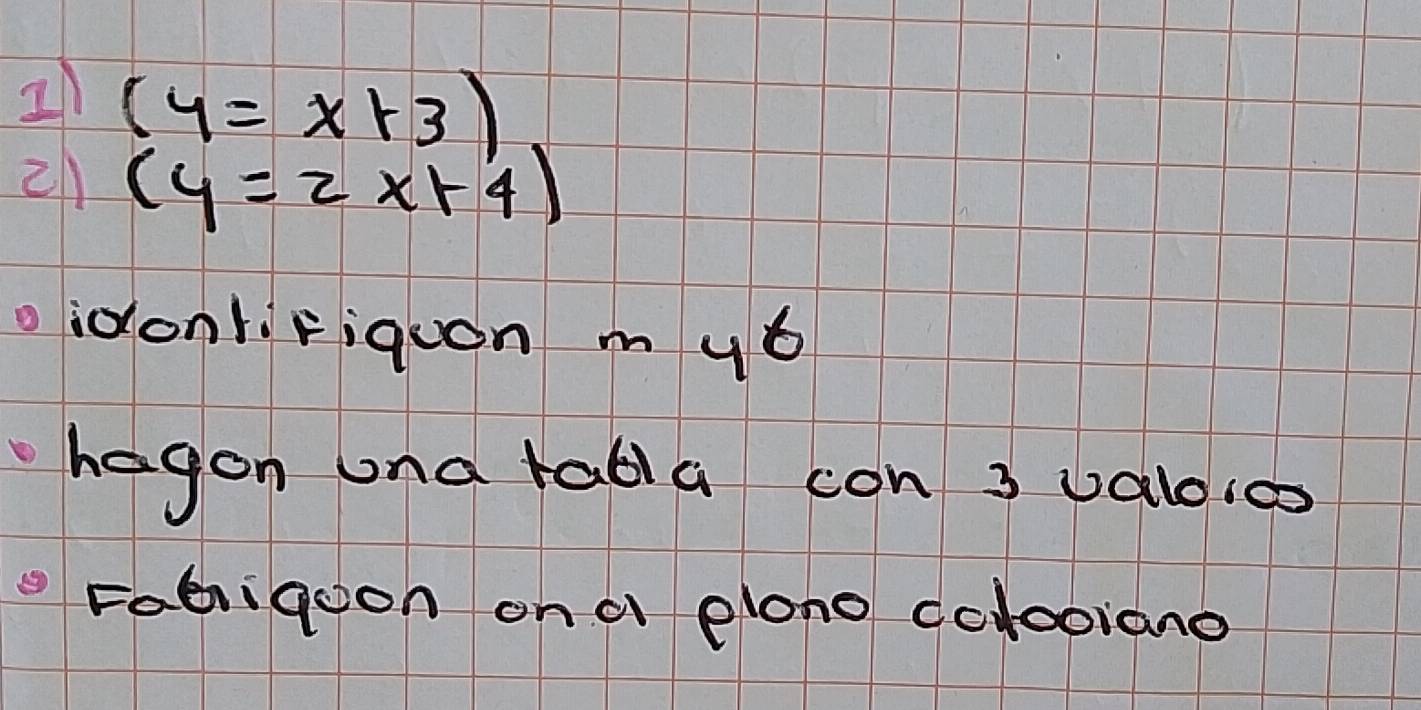 1) (y = x+3)
2) (y = 2x+4)
• identifiquen m y b
• hagan una tabla con 3 valores
• Fabriquen en el plano cartesiano